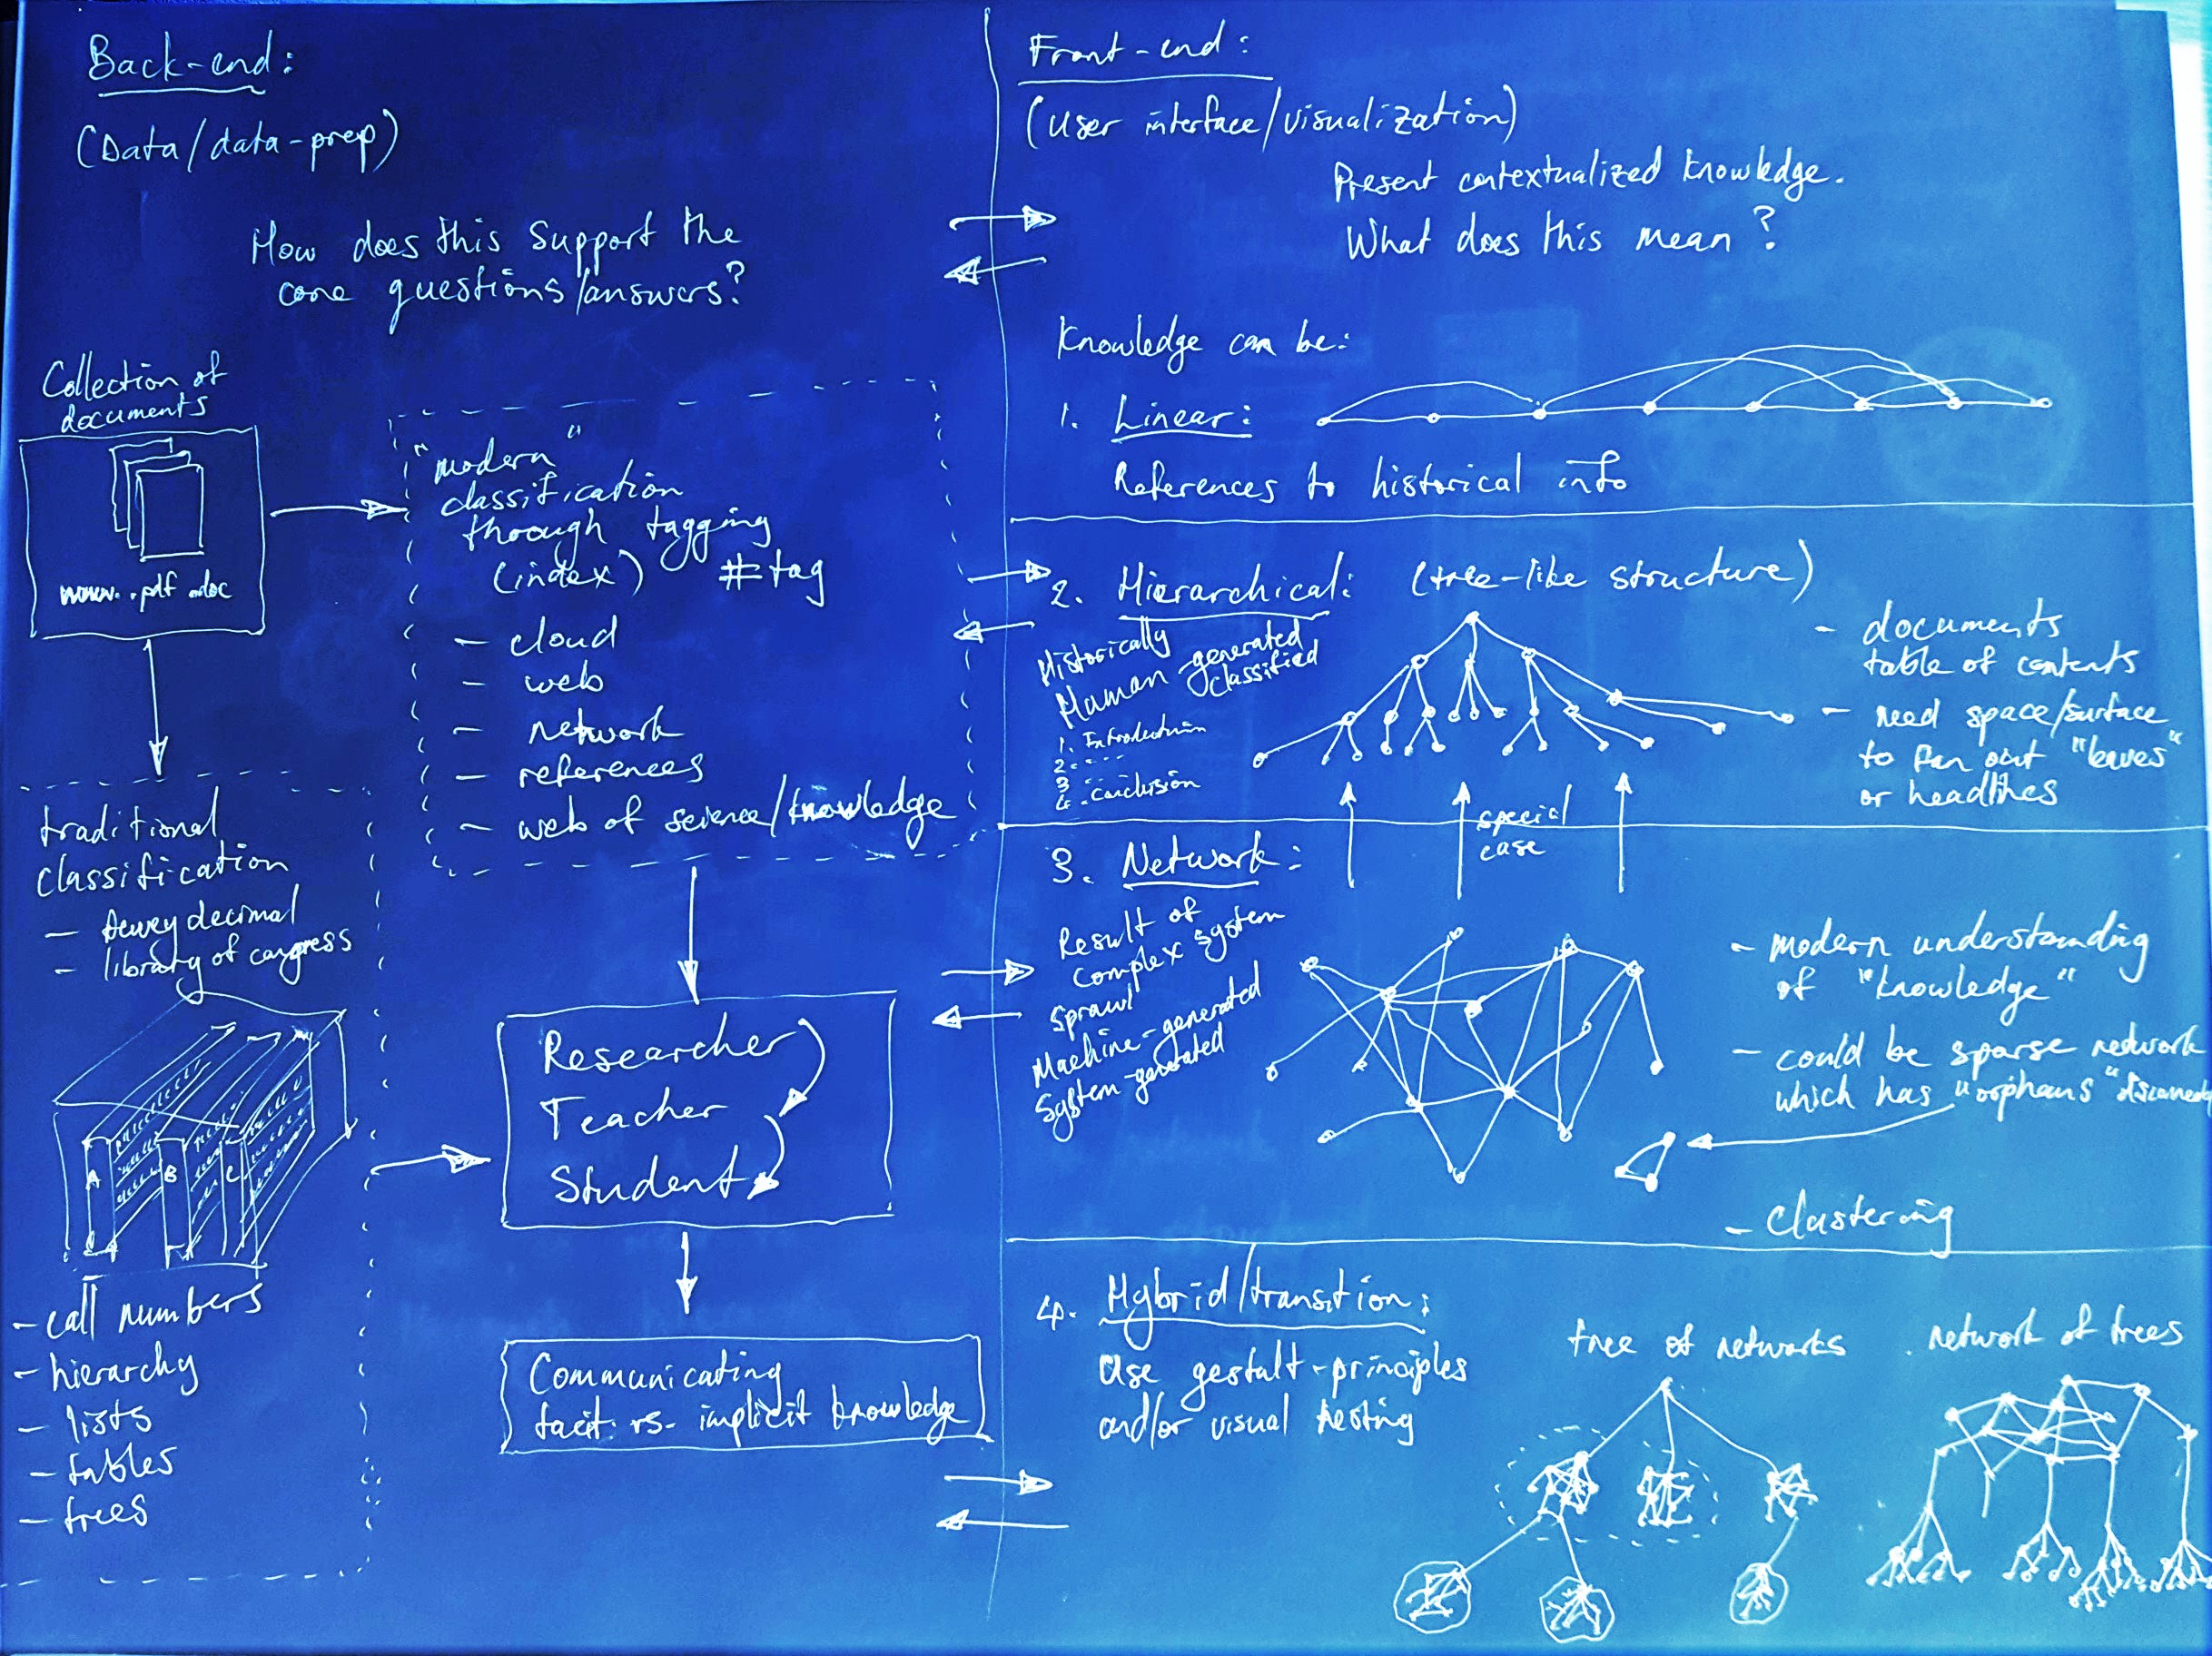 Back-end:
(Data/data-prep)
How does this support the
core questions/answers?
Collection of
documents
www. .pdf .doc
"modern"
classification
through tagging
(index) #tag
- cloud
- web
- network
- references
- web of science/knowledge
traditional
classification
- Dewey decimal
- library of congress
A B C
- call numbers
- hierarchy
- lists
- tables
- trees
Researcher
Teacher
Student
Communicating
tacit vs. implicit knowledge
Front-end:
(User interface/visualization)
Present contextualized knowledge.
What does this mean?
Knowledge can be:
1. Linear:
References to historical info
2. Hierarchical: (tree-like structure)
Historically
Human-generated
classified
1. Introduction
2. ...
3 ...
4. Conclusion
- documents
table of contents
- need space/surface
to fan out "leaves"
or headlines
special
case
3. Network:
Result of
complex system
sprawl
Machine-generated
System-generated
- modern understanding
of "knowledge"
- could be sparse network
which has "orphans"
- Clustering
4. Hybrid/transition:
Use gestalt-principles
and/or visual nesting
tree of networks
network of trees